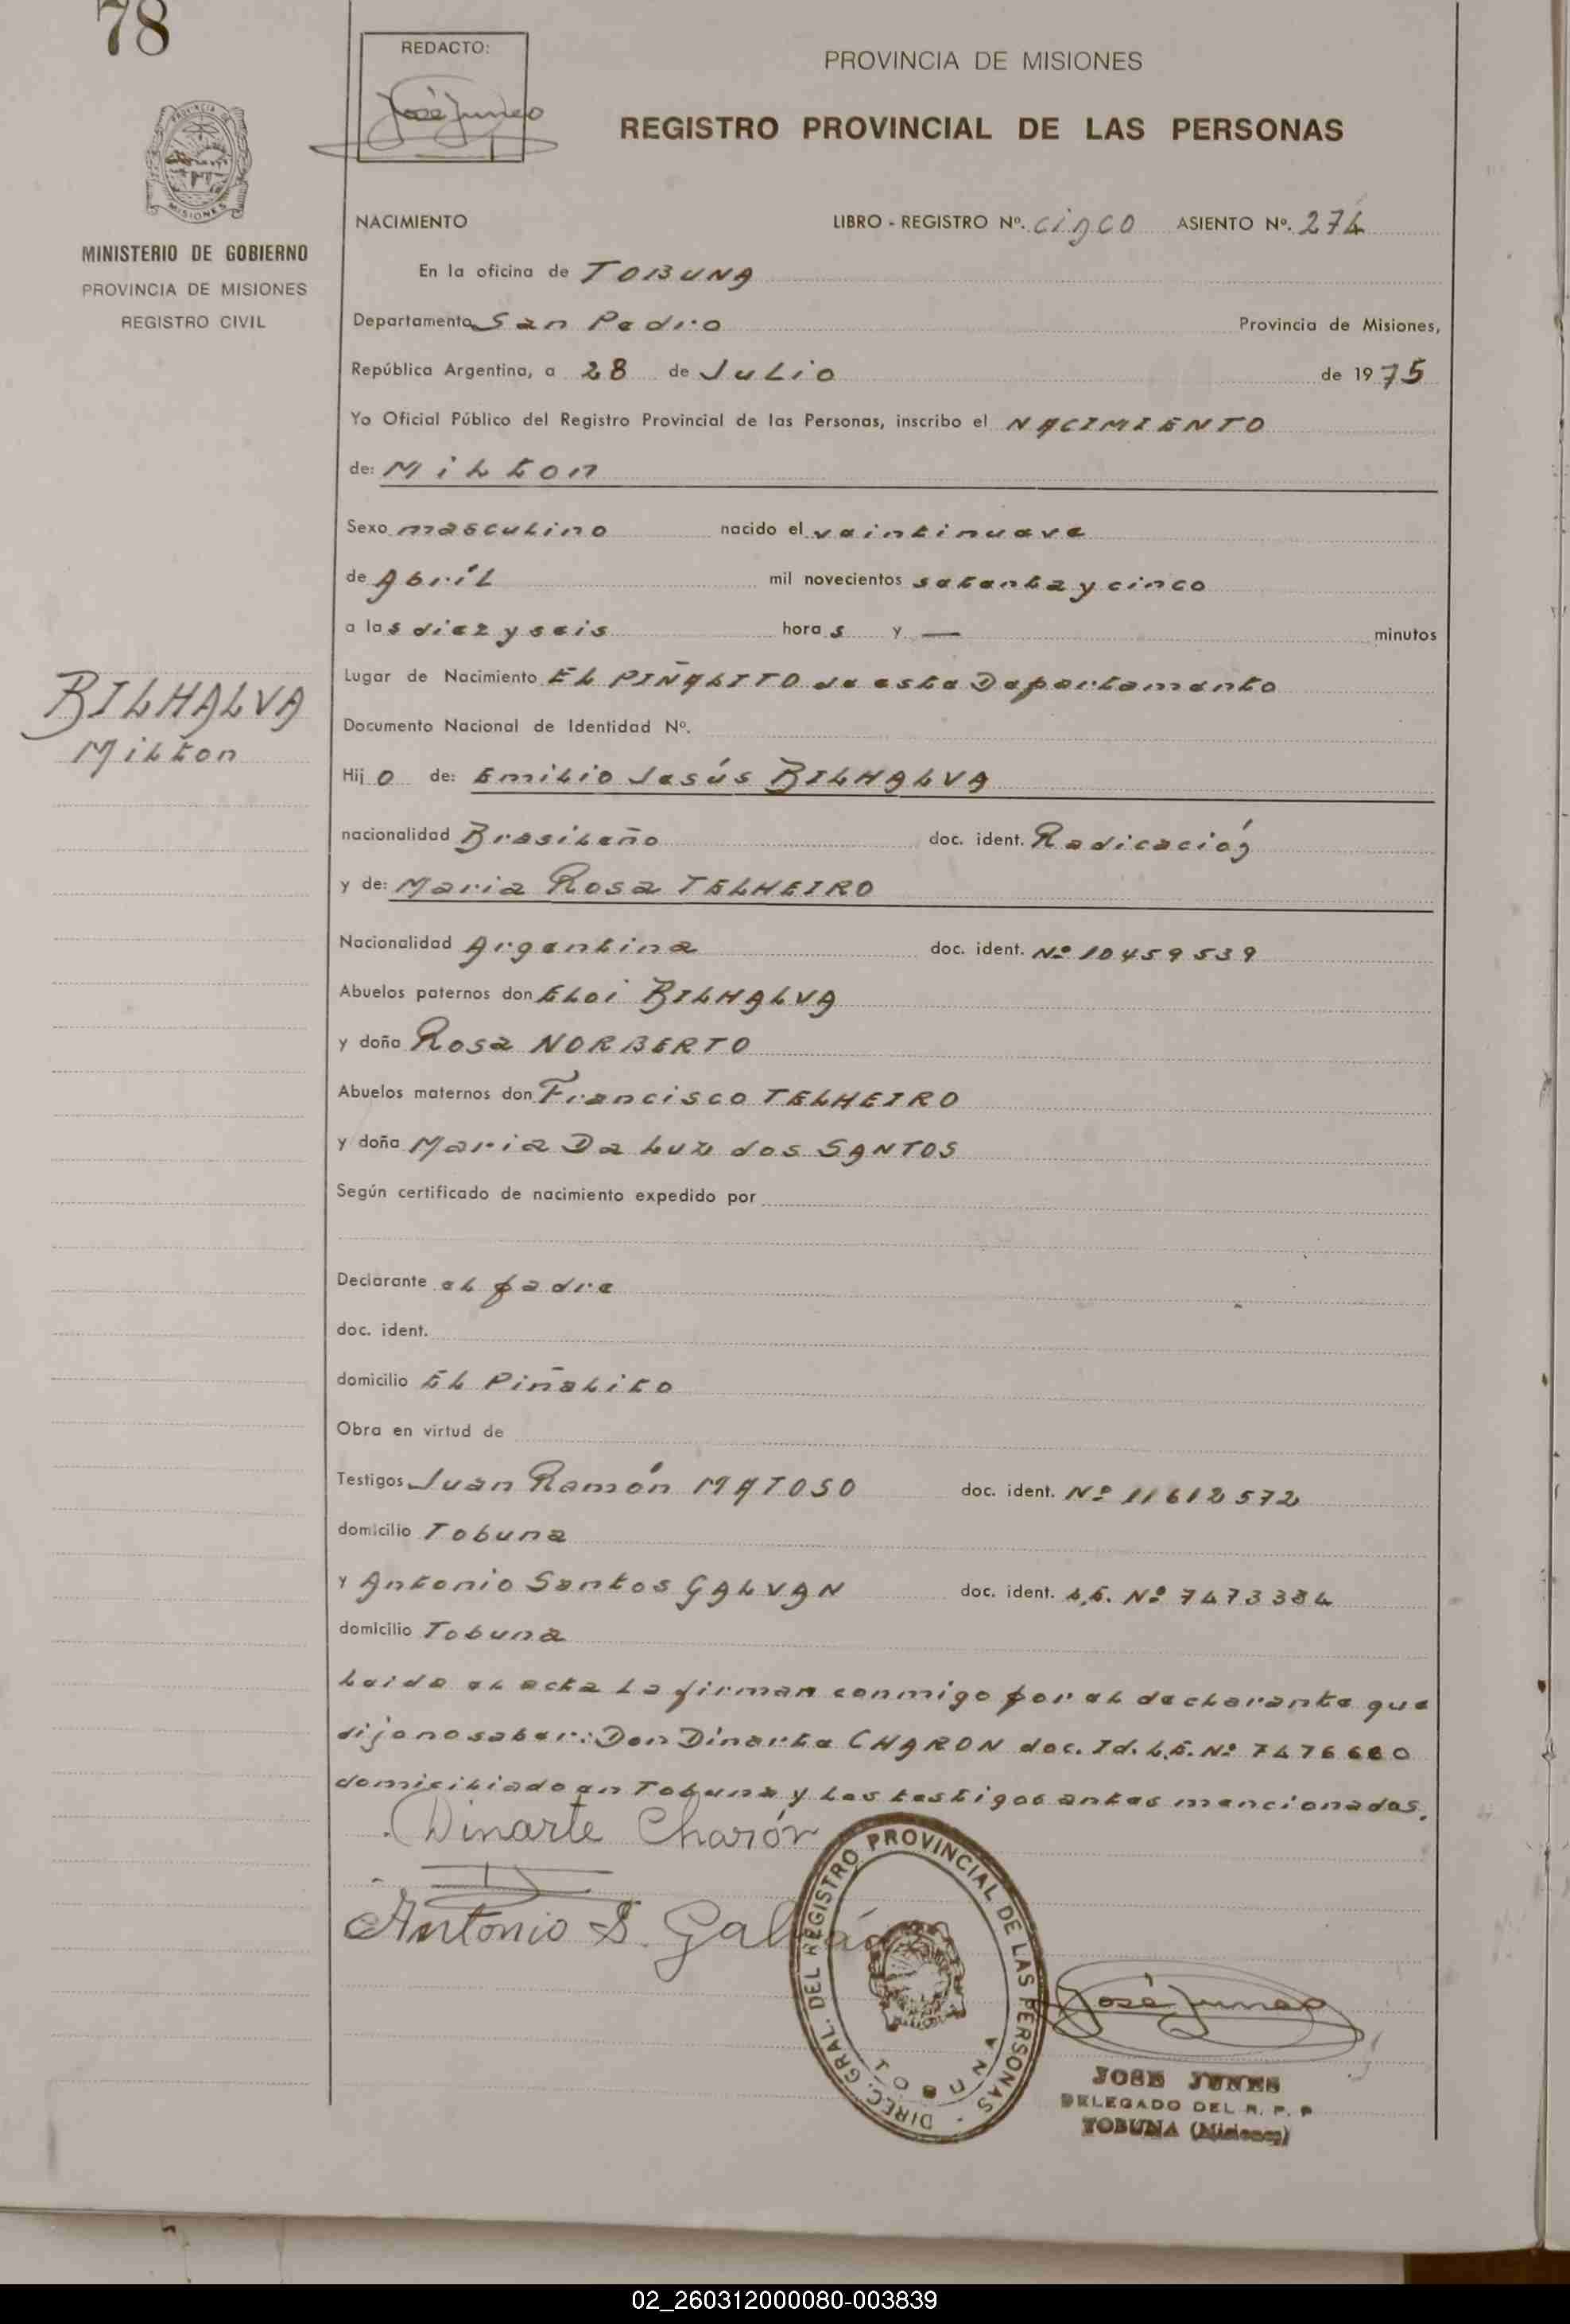 78
REDACTO:
José Junes
PROVINCIA DE MISIONES
REGISTRO PROVINCIAL DE LAS PERSONAS
PROVINCIA DE MISIONES
MINISTERIO DE GOBIERNO
PROVINCIA DE MISIONES
REGISTRO CIVIL
NACIMIENTO LIBRO - REGISTRO Nº. cinco ASIENTO Nº. 274
En la oficina de TOBUNA
Departamento San Pedro Provincia de Misiones,
República Argentina, a 28 de Julio de 1975
Yo Oficial Público del Registro Provincial de las Personas, inscribo el NACIMIENTO
de: Milton
Sexo masculino nacido el veintinueve
de Abríl mil novecientos setenta y cinco
a las diez y seis horas y — minutos
Lugar de Nacimiento EL PIÑALITO de este Departamento
BILHALVA
Milton
Documento Nacional de Identidad Nº.
Hijo de: Emilio Jesús BILHALVA
nacionalidad Brasileño doc. ident. Radicación
y de: Maria Rosa TELHEIRO
Nacionalidad Argentina doc. ident. Nº 10459539
Abuelos paternos don Eloi BILHALVA
y doña Rosa NORBERTO
Abuelos maternos don Francisco TELHEIRO
y doña Maria Da Luz dos SANTOS
Según certificado de nacimiento expedido por
Declarante el padre
doc. ident.
domicilio EL Piñalito
Obra en virtud de
Testigos Juan Ramón MATOSO doc. ident. Nº 11612572
domicilio Tobuna
y Antonio Santos GALVAN doc. ident. L.E. Nº 7473384
domicilio Tobuna
Leida el acta la firman conmigo por el declarante que
dijo no saber: Don Dinarte CHARON doc. Id. L.E. Nº 7476680
domiciliado en Tobuna y los testigos antes mencionados.
Dinarte Charón
Antonio S. Galván
DIREC. GRAL. DEL REGISTRO PROVINCIAL DE LAS PERSONAS -
TOBUNA
José Junes
JOSE JUNES
DELEGADO DEL R. P. P
TOBUNA (Misiones)
02_260312000080-003839